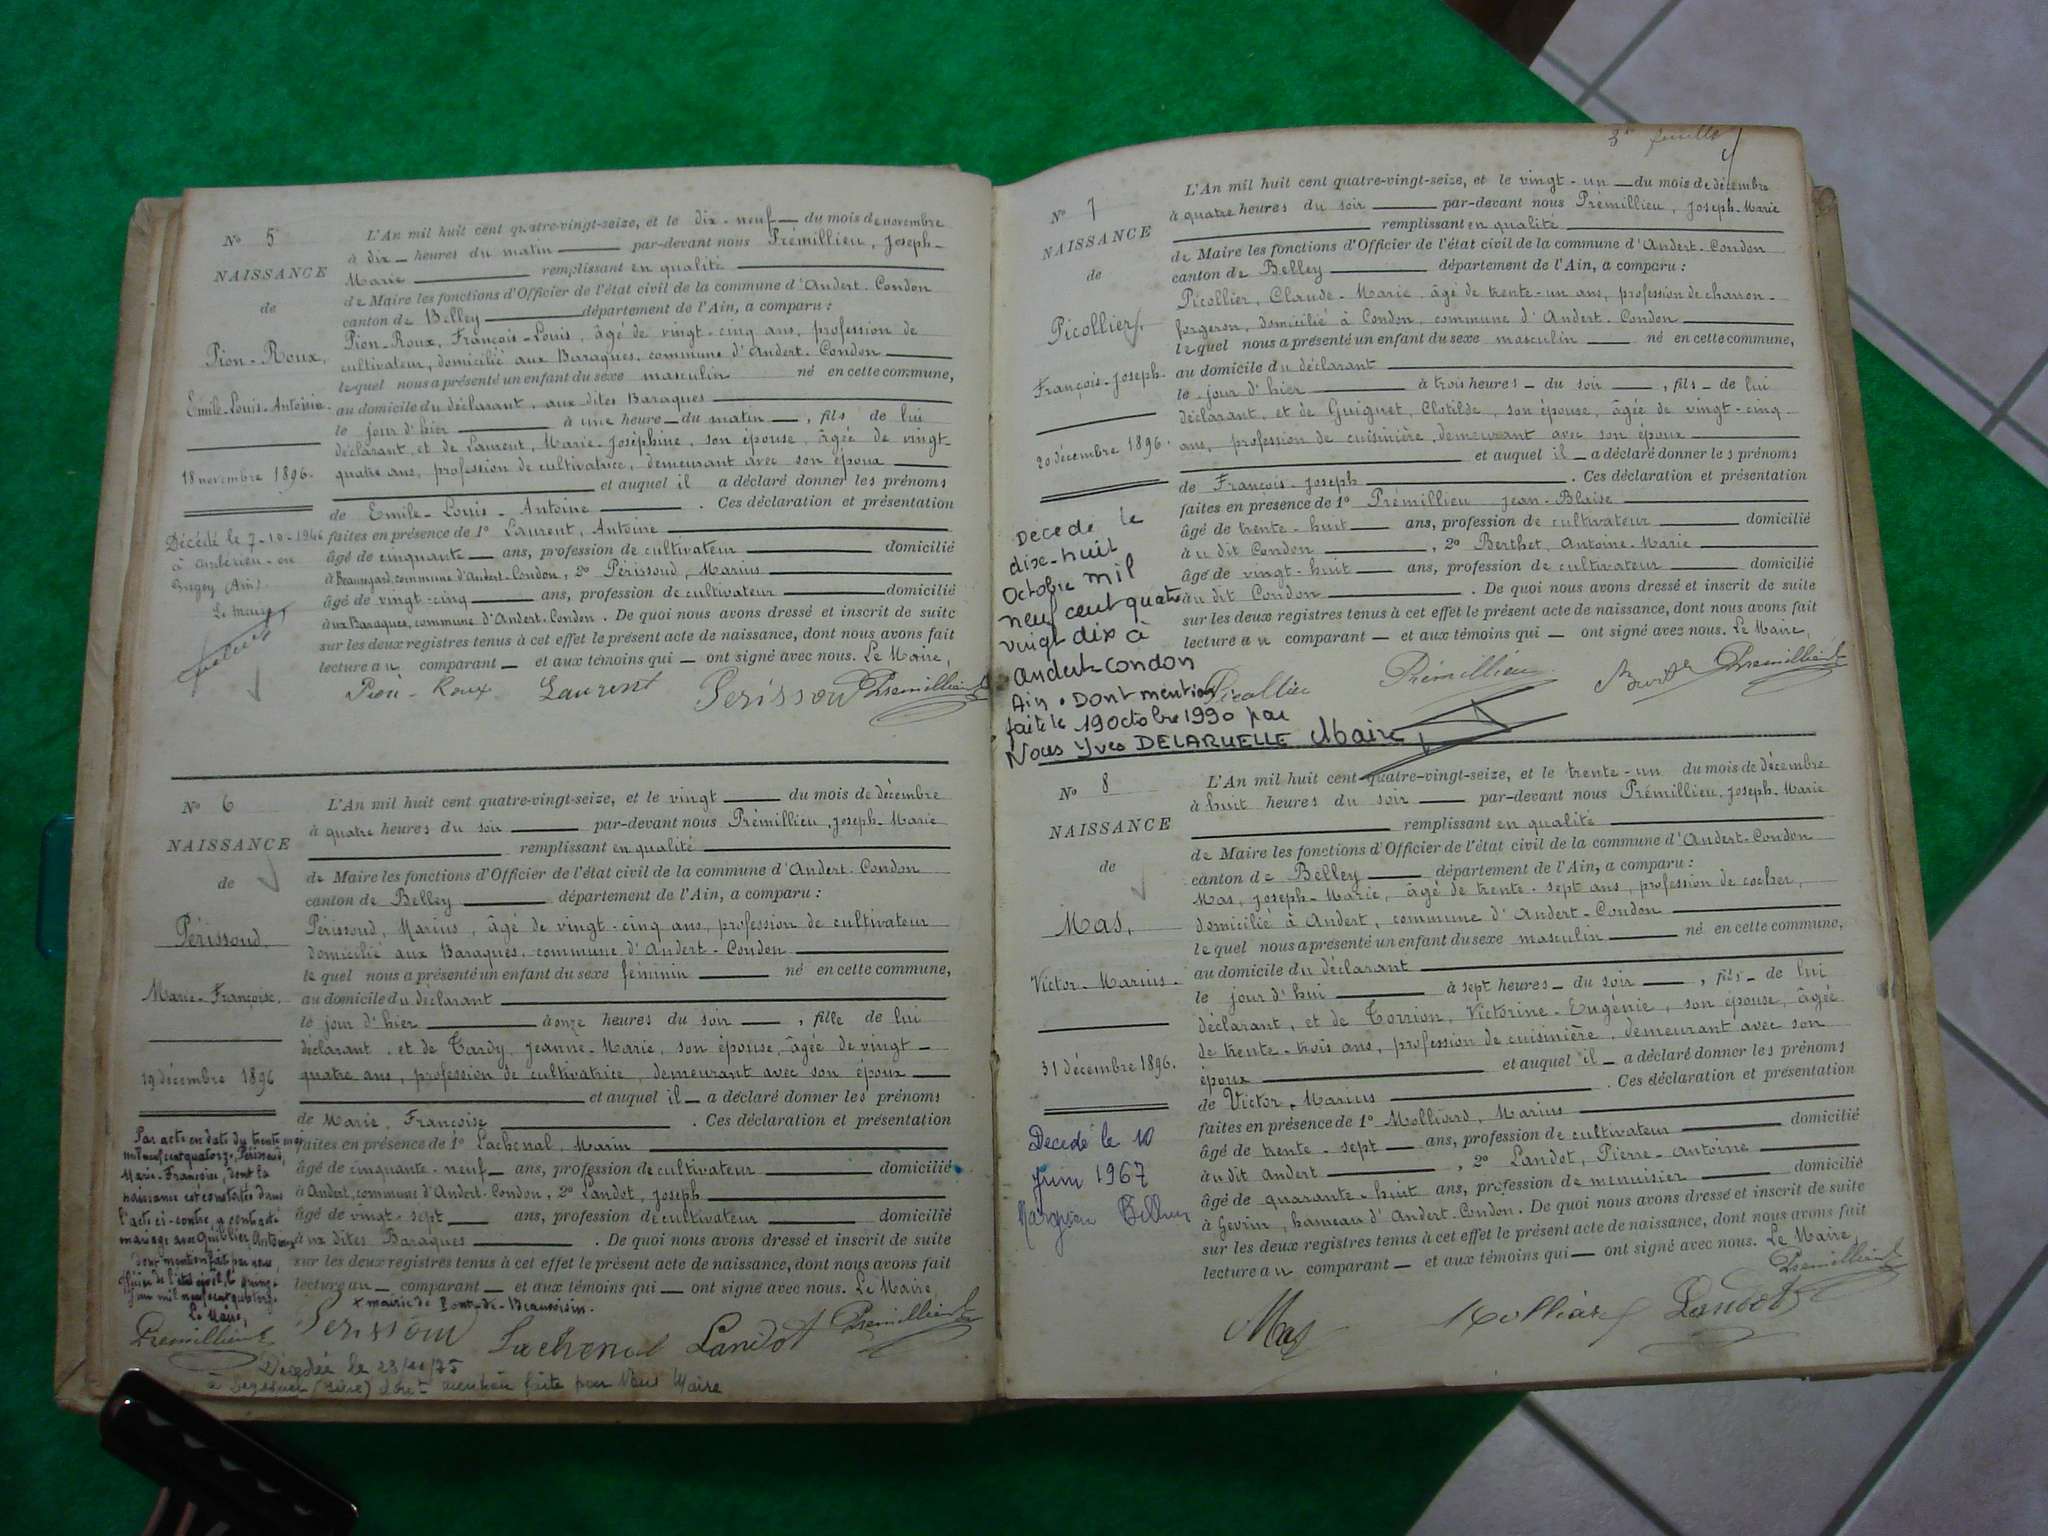 No 5
NAISSANCE
de
Pion-Roux,
Emile-Louis-Antoine.
18 novembre 1896.
Décédé le 7-10-1946
à Ambérieu-en
Bugey (Ain)
Le maire
L'An mil huit cent quatre-vingt-seize, et le dix-neuf du mois de novembre
à dix heures du matin par-devant nous Prémillieu, Joseph-
Marie remplissant en qualité
de Maire les fonctions d'Officier de l'état civil de la commune d'Andert-Condon
canton de Belley département de l'Ain, a comparu :
Pion-Roux, François-Louis, âgé de vingt-cinq ans, profession de
cultivateur, domicilié aux Baraques, commune d'Andert-Condon
lequel nous a présenté un enfant du sexe masculin né en cette commune,
au domicile du déclarant, aux dites Baraques
le jour d'hier à une heure du matin, fils de lui
déclarant et de Laurent, Marie-Joséphine, son épouse, âgée de vingt-
quatre ans, profession de cultivatrice, demeurant avec son époux
et auquel il a déclaré donner les prénoms
de Emile-Louis-Antoine. Ces déclaration et présentation
faites en présence de 1o Laurent, Antoine
âgé de cinquante ans, profession de cultivateur domicilié
à Beauregard, commune d'Andert-Condon, 2o Périssoud, Marius
âgé de vingt-cinq ans, profession de cultivateur domicilié
aux Baraques, commune d'Andert-Condon. De quoi nous avons dressé et inscrit de suite
sur les deux registres tenus à cet effet le présent acte de naissance, dont nous avons fait
lecture au comparant et aux témoins qui ont signé avec nous. Le Maire,
Pion-Roux Laurent Perissoud Premillieu
No 6
NAISSANCE
de
Périssoud,
Marie-Françoise.
19 décembre 1896
Par acte en date du trente mai
mil neuf cent quatorze, Périssoud,
Marie-Françoise, dont la
naissance est constatée dans
l'acte ci-contre, a contracté
mariage avec Quiblier, Antoine x
dont mention fait par nous
officier de l'état civil, le quinze
juin mil neuf cent quatorze.
Le Maire,
Premillieu
L'An mil huit cent quatre-vingt-seize, et le vingt du mois de décembre
à quatre heures du soir par-devant nous Prémillieu, Joseph-Marie
remplissant en qualité
de Maire les fonctions d'Officier de l'état civil de la commune d'Andert-Condon
canton de Belley département de l'Ain, a comparu :
Périssoud, Marius, âgé de vingt-cinq ans, profession de cultivateur
domicilié aux Baraques, commune d'Andert-Condon
lequel nous a présenté un enfant du sexe féminin né en cette commune,
au domicile du déclarant
le jour d'hier à onze heures du soir, fille de lui
déclarant, et de Tardy, Jeanne-Marie, son épouse, âgée de vingt-
quatre ans, profession de cultivatrice, demeurant avec son époux
et auquel il a déclaré donner les prénoms
de Marie, Françoise. Ces déclaration et présentation
faites en présence de 1o Lachenal, Marin
âgé de cinquante-neuf ans, profession de cultivateur domicilié
à Andert, commune d'Andert-Condon, 2o Landot, Joseph
âgé de vingt-sept ans, profession de cultivateur domicilié
aux dites Baraques. De quoi nous avons dressé et inscrit de suite
sur les deux registres tenus à cet effet le présent acte de naissance, dont nous avons fait
lecture au comparant et aux témoins qui ont signé avec nous. Le Maire,
x mairie de Pont-de-Beauvoisin.
Perissoud Lachenal Landot Premillieu
Décédée le 23/10/75
à (Isère) dont mention faite par Nous Maire
3e feuille
No 7
NAISSANCE
de
Picollier,
François-Joseph.
20 décembre 1896.
Décédé le
dix-huit
Octobre mil
neuf cent quatre
vingt dix à
Andert-Condon
Ain. Dont mention
faite le 19 octobre 1990 par
Nous Yves DELARUELLE Maire,
L'An mil huit cent quatre-vingt-seize, et le vingt-un du mois de décembre
à quatre heures du soir par-devant nous Prémillieu, Joseph-Marie
remplissant en qualité
de Maire les fonctions d'Officier de l'état civil de la commune d'Andert-Condon
canton de Belley département de l'Ain, a comparu :
Picollier, Claude-Marie, âgé de trente-un ans, profession de charron-
forgeron, domicilié à Condon, commune d'Andert-Condon
lequel nous a présenté un enfant du sexe masculin né en cette commune,
au domicile du déclarant
le jour d'hier à trois heures du soir, fils de lui
déclarant, et de Guignet, Clotilde, son épouse, âgée de vingt-cinq
ans, profession de cuisinière, demeurant avec son époux
et auquel il a déclaré donner les prénoms
de François-Joseph. Ces déclaration et présentation
faites en présence de 1o Prémillieu Jean-Blaise
âgé de trente-huit ans, profession de cultivateur domicilié
au dit Condon, 2o Berthet, Antoine-Marie
âgé de vingt-huit ans, profession de cultivateur domicilié
au dit Condon. De quoi nous avons dressé et inscrit de suite
sur les deux registres tenus à cet effet le présent acte de naissance, dont nous avons fait
lecture au comparant et aux témoins qui ont signé avec nous. Le Maire,
Picollier Prémillieu Premillieu
No 8
NAISSANCE
de
Mas,
Victor-Marius.
31 décembre 1896.
Décédé le 10
juin 1967
L'An mil huit cent quatre-vingt-seize, et le trente-un du mois de décembre
à huit heures du soir par-devant nous Prémillieu, Joseph-Marie
remplissant en qualité
de Maire les fonctions d'Officier de l'état civil de la commune d'Andert-Condon
canton de Belley département de l'Ain, a comparu :
Mas, Joseph-Marie, âgé de trente-sept ans, profession de cocher,
domicilié à Andert, commune d'Andert-Condon
lequel nous a présenté un enfant du sexe masculin né en cette commune,
au domicile du déclarant
le jour d'hui à sept heures du soir, fils de lui
déclarant, et de Torrion, Victorine-Eugénie, son épouse, âgée
de trente-trois ans, profession de cuisinière, demeurant avec son
époux et auquel il a déclaré donner les prénoms
de Victor-Marius. Ces déclaration et présentation
faites en présence de 1o Molliard, Marius
âgé de trente-sept ans, profession de cultivateur domicilié
au dit Andert, 2o Landot, Pierre-Antoine
âgé de quarante-huit ans, profession de menuisier domicilié
à Gevrin, hameau d'Andert-Condon. De quoi nous avons dressé et inscrit de suite
sur les deux registres tenus à cet effet le présent acte de naissance, dont nous avons fait
lecture au comparant et aux témoins qui ont signé avec nous. Le Maire,
Premillieu
Mas Molliard Landot